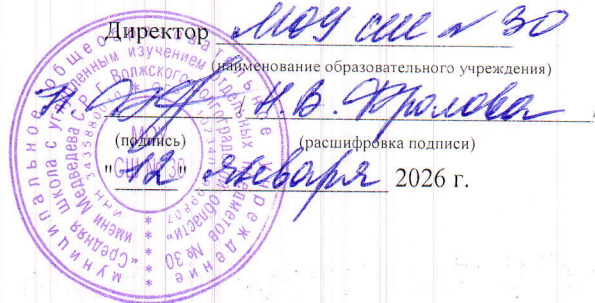 Директор МОУ СШ № 30
(наименование образовательного учреждения)
/ Н.В. Фролова /
(подпись) (расшифровка подписи)
"12" января 2026 г.
Муниципальное общеобразовательное учреждение
"Средняя школа с углубленным изучением отдельных предметов № 30
имени Медведева С.Р. г. Волжского Волгоградской области"